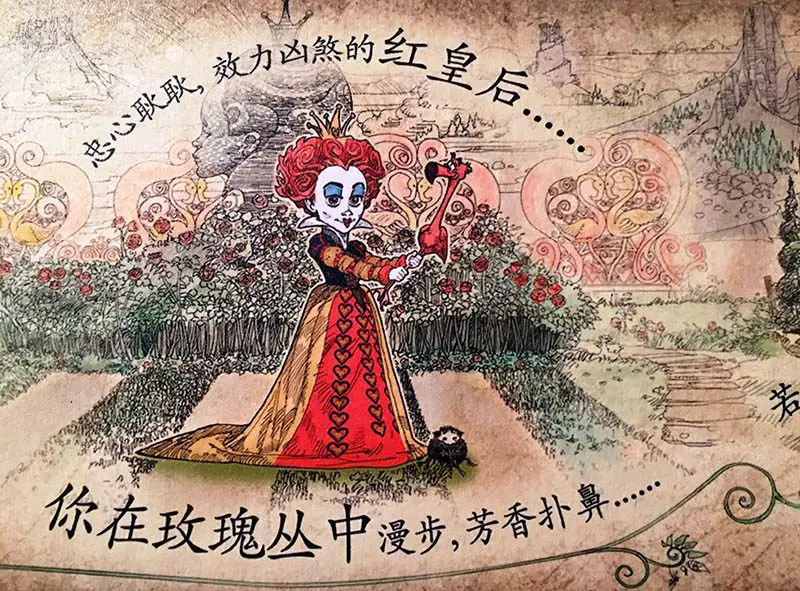 忠心耿耿，效力凶煞的红皇后……
若
你在玫瑰丛中漫步，芳香扑鼻……